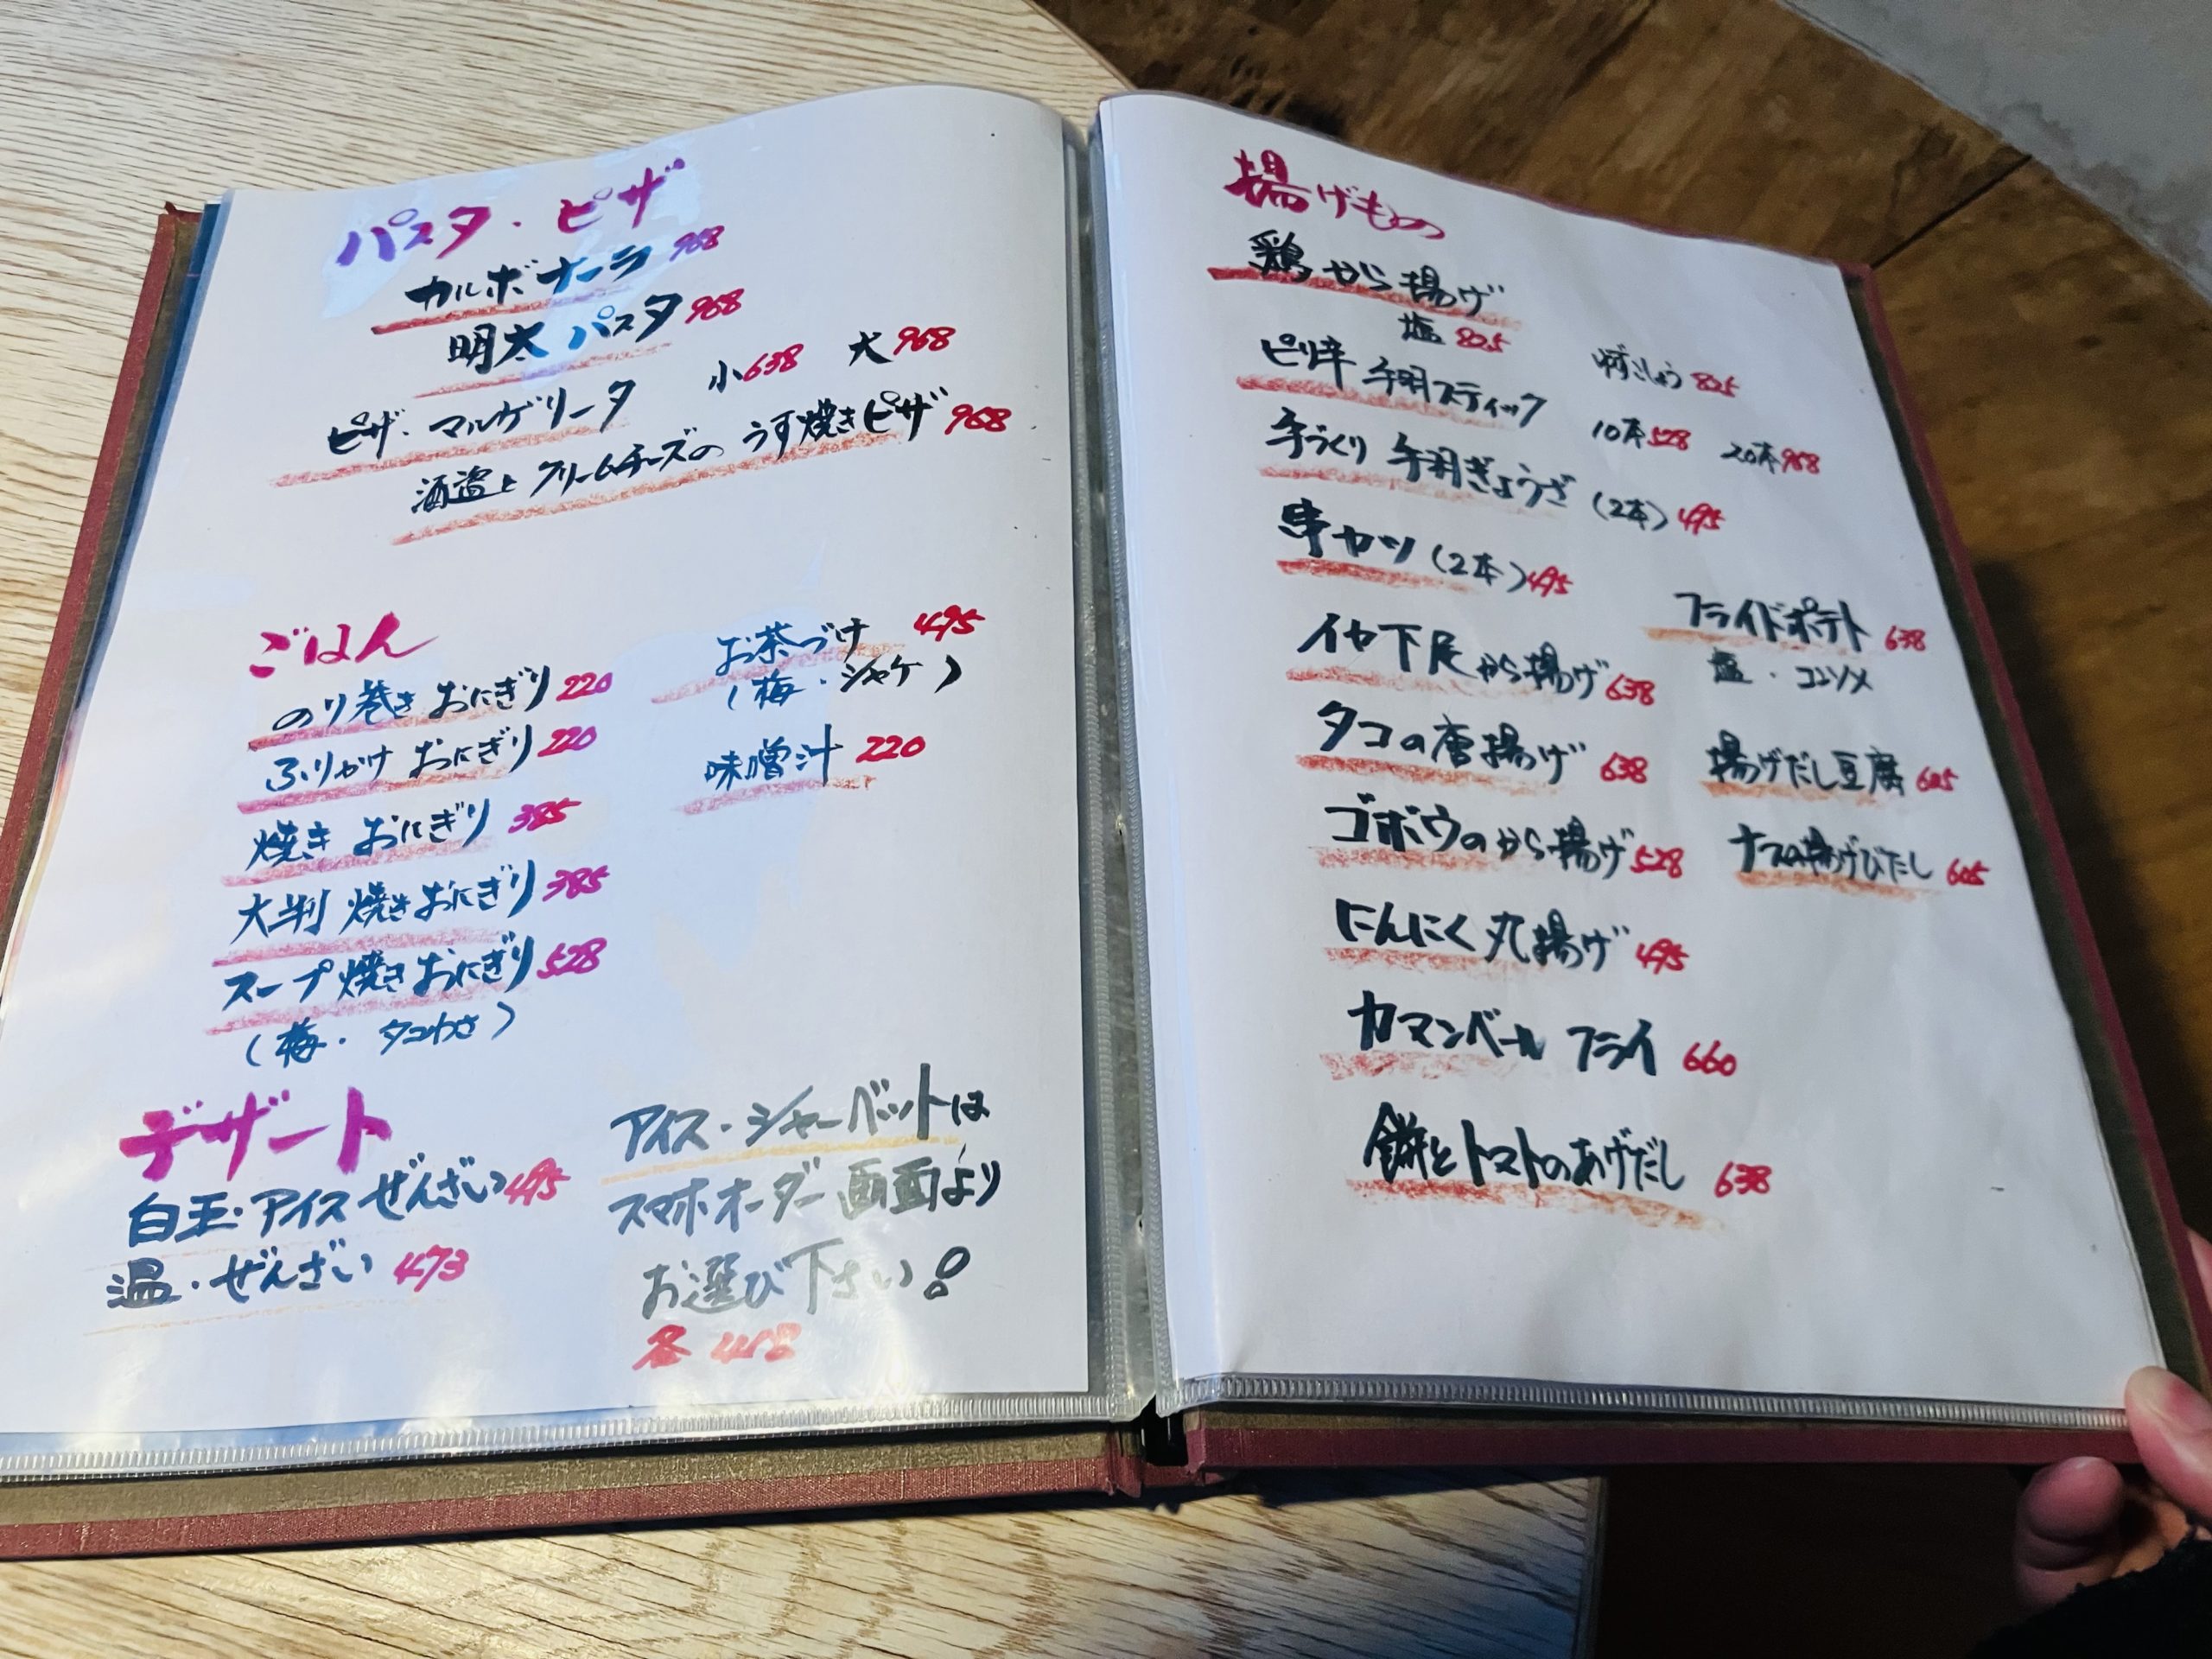 パスタ・ピザ
カルボナーラ 968
明太パスタ 968
ピザ・マルゲリータ 小638 大968
酒盗とクリームチーズのうす焼きピザ 968
ごはん
のり巻きおにぎり 220
ふりかけおにぎり 220
焼きおにぎり 385
大判焼きおにぎり 385
スープ焼きおにぎり 528
(梅・タコわさ)
お茶づけ 495
(梅・シャケ)
味噌汁 220
デザート
白玉・アイスぜんざい 495
温・ぜんざい 473
アイス・シャーベットは
スマホオーダー画面より
お選び下さい!
各 418
揚げもの
鶏から揚げ
塩 825 ゆずこしょう 825
ピリ辛 手羽スティック 10本528 20本968
手づくり 手羽ぎょうざ (2本) 495
串カツ (2本) 495
イカ下足から揚げ 638
タコの唐揚げ 638
ゴボウのから揚げ 528
にんにく丸揚げ 495
カマンベールフライ 660
餅とトマトのあげだし 638
フライドポテト 638
塩・コンソメ
揚げだし豆腐 605
ナスの揚げびたし 605